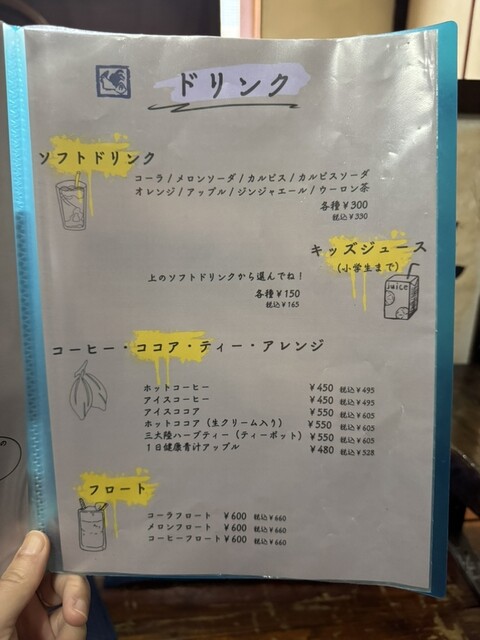 ドリンク
ソフトドリンク
コーラ/メロンソーダ/カルピス/カルピスソーダ
オレンジ/アップル/ジンジャエール/ウーロン茶
各種¥300
税込¥330
キッズジュース
(小学生まで)
上のソフトドリンクから選んでね！
各種¥150
税込¥165
juice
コーヒー・ココア・ティー・アレンジ
ホットコーヒー ¥450 税込¥495
アイスコーヒー ¥450 税込¥495
アイスココア ¥550 税込¥605
ホットココア（生クリーム入り） ¥550 税込¥605
三大陸ハーブティー（ティーポット） ¥550 税込¥605
1日健康青汁アップル ¥480 税込¥528
フロート
コーラフロート ¥600 税込¥660
メロンフロート ¥600 税込¥660
コーヒーフロート¥600 税込¥660